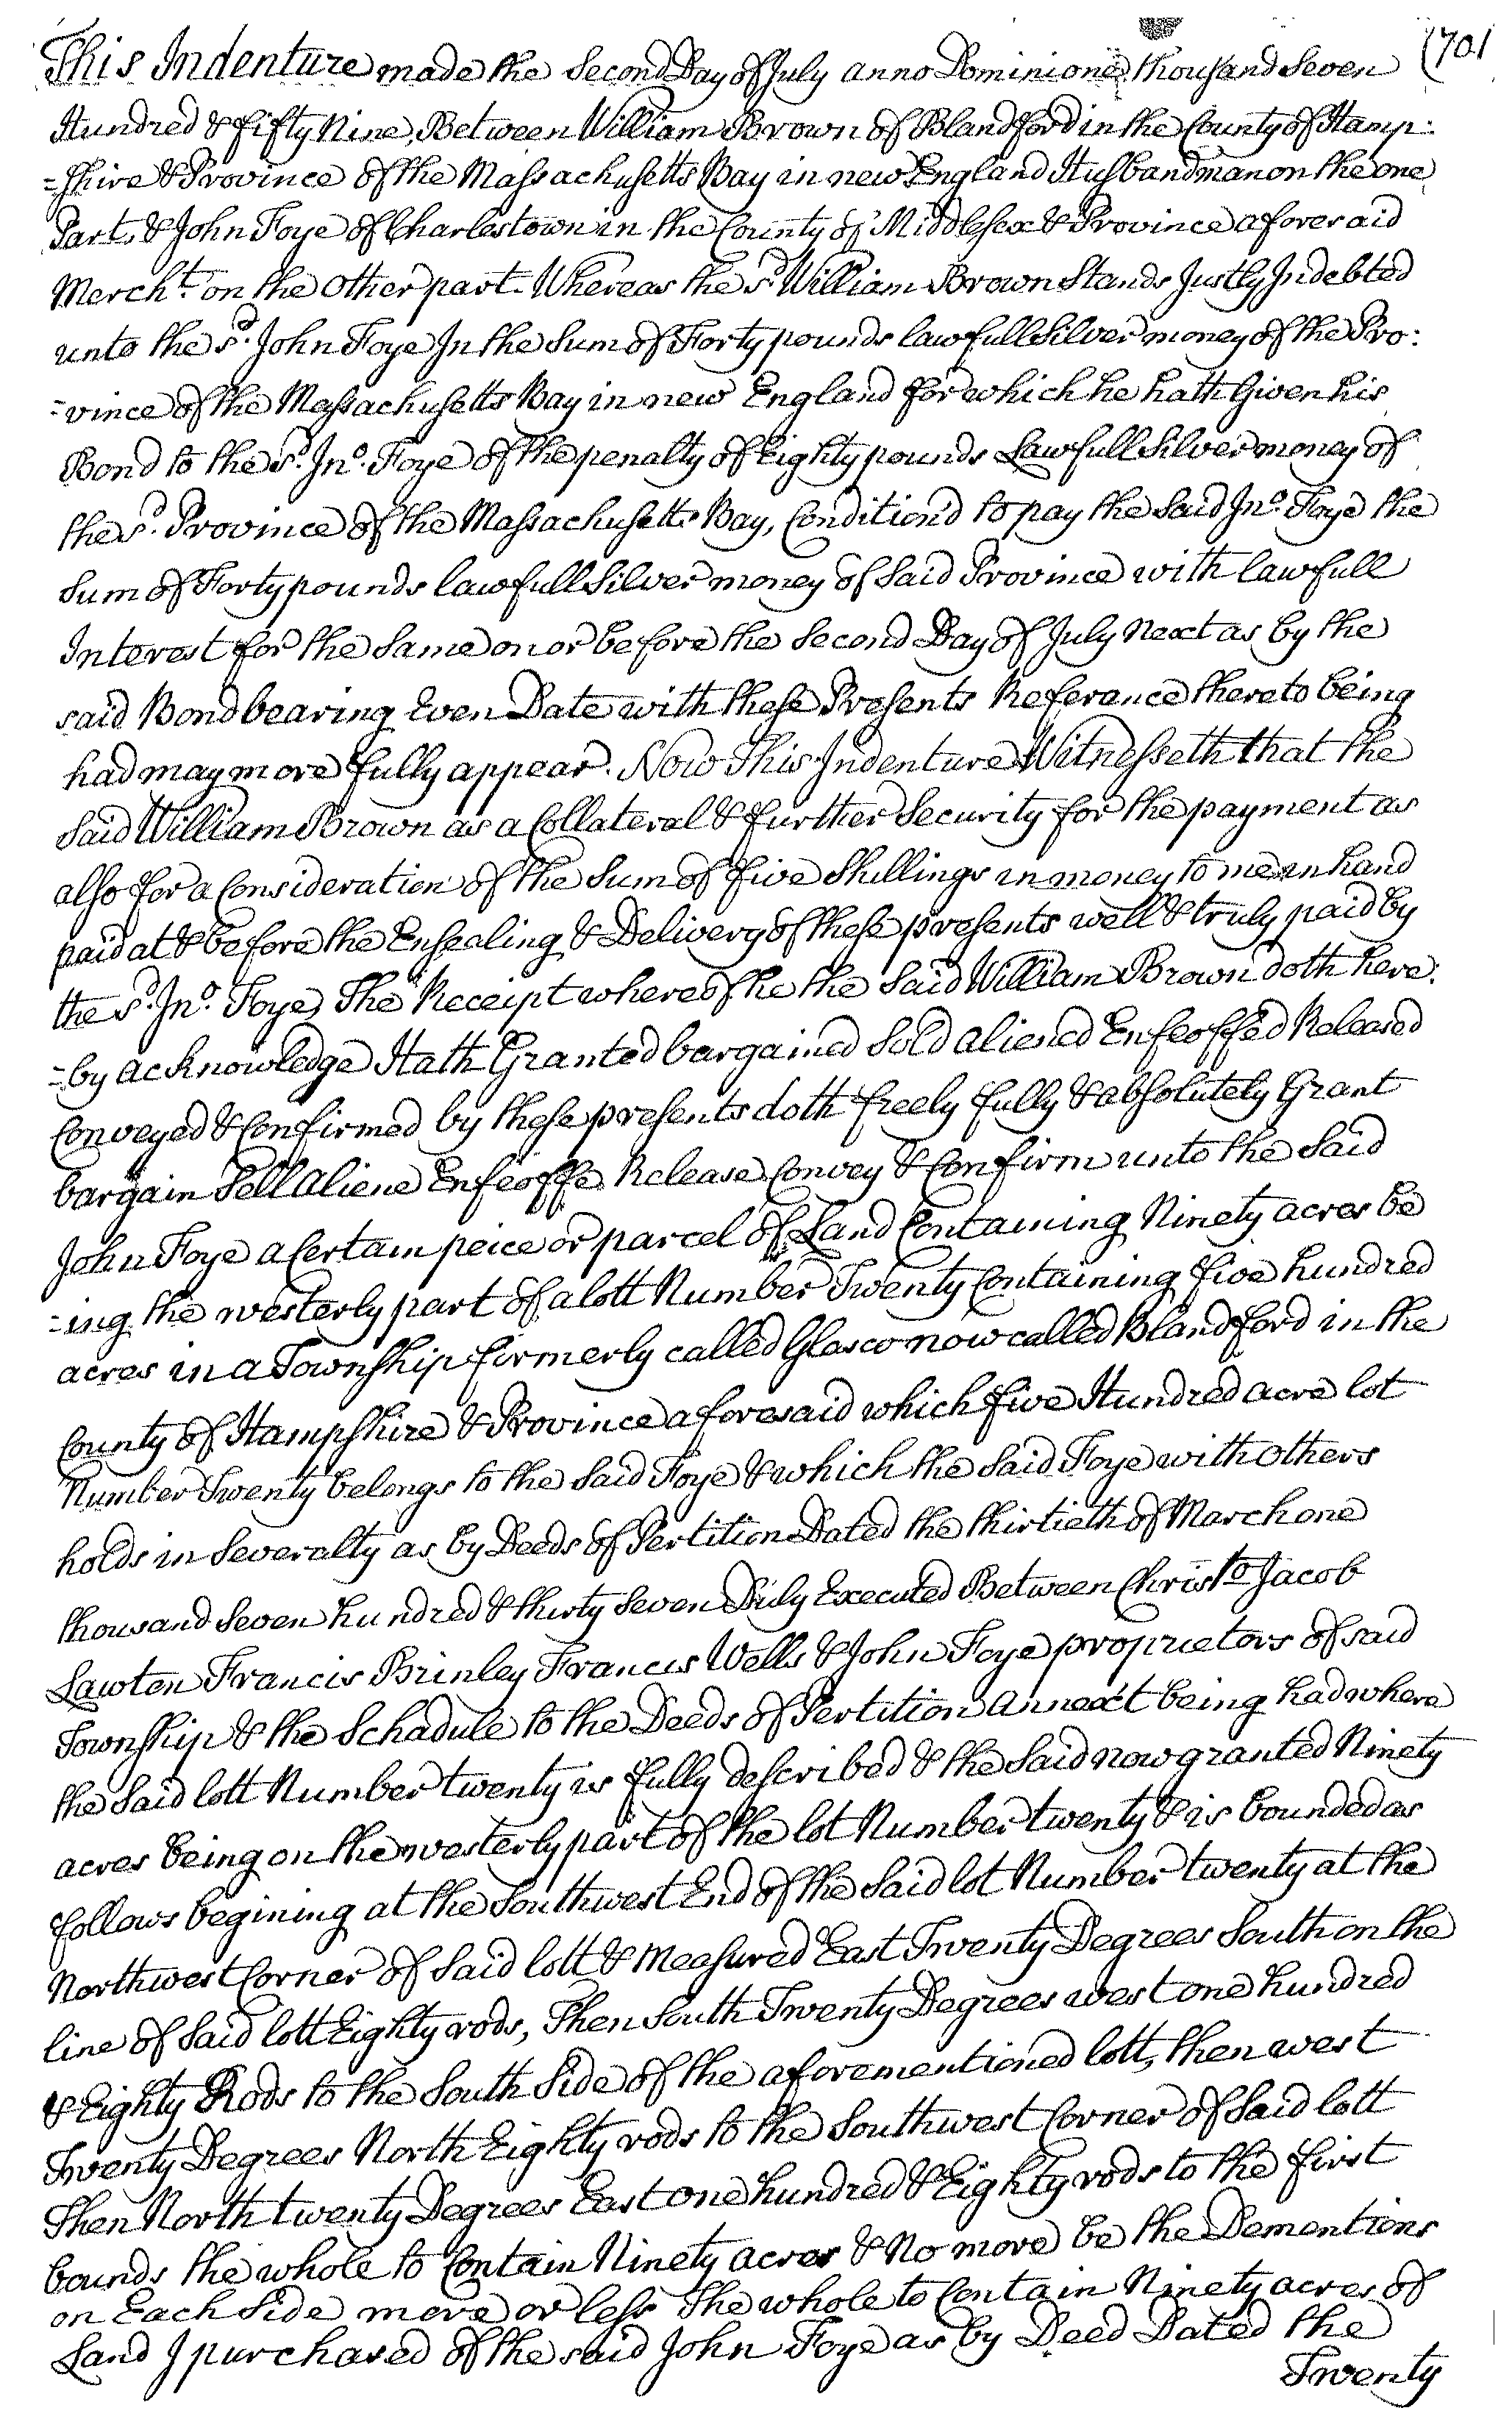 (701
This Indenture made the Second Day of July anno Domini one thousand Seven
Hundred & fifty Nine, Between William Brown of Blandford in the County of Hamp:
=shire & Province of the Massachusetts Bay in new England Husbandman on the one
Part, & John Foye of Charlestown in the County of Middlesex & Province aforesaid
Mercht. on the other part. Whereas the sd. William Brown Stands Justly Indebted
unto the sd. John Foye In the Sum of Forty pounds lawfull Silver money of the Pro:
=vince of the Massachusetts Bay in new England for which he hath Given his
Bond to the sd. Jno. Foye of the penalty of Eighty pounds Lawfull Silver money of
the sd. Province of the Massachusetts Bay, Condition'd to pay the Said Jno. Foye the
Sum of Forty pounds lawfull Silver money of Said Province with lawfull
Interest for the Same on or before the Second Day of July Next as by the
said Bond bearing Even Date with these Presents Referance thereto being
had may more fully appear. Now This Indenture Witnesseth that the
Said William Brown as a Collateral & further Security for the payment as
also for a Consideration of the Sum of five Shillings in money to me in hand
paid at & before the Ensealing & Delivery of these presents well & truly paid by
the sd. Jno. Foye, The Receipt whereof he the Said William Brown doth here:
=by acknowledge Hath Granted bargained Sold aliened Enfeoffed Released
Conveyed & Confirmed by these presents doth freely fully & absolutely Grant
bargain Sell aliene Enfeoffe Release Convey & Confirm unto the Said
John Foye a Certain peice or parcel of Land Containing Ninety acres be
=ing the westerly part of a lott Number Twenty Containing five hundred
acres in a Township firmerly called Glasco now called Blandford in the
County of Hampshire & Province aforesaid which five Hundred acre lot
Number Twenty belongs to the Said Foye & which the Said Foye with others
holds in Severalty as by Deeds of Pertition Dated the thirtieth of March one
thousand Seven hundred & thirty Seven Duly Executed Between Christo Jacob
Lawton Francis Brinley Francis Wells & John Foye proprietors of said
Township & the Schadule to the Deeds of Pertition annext being had where
the Said lott Number twenty is fully described & the Said now granted Ninety
acres being on the westerly part of the lot Number twenty & is bounded as
follows begining at the Southwest End of the Said lot Number twenty at the
Northwest Corner of Said lott & Measured East Twenty Degrees South on the
line of Said lott Eighty rods, Then South Twenty Degrees west one hundred
& Eighty Rods to the South Side of the aforementioned lott, then west
Twenty Degrees North Eighty rods to the Southwest Corner of Said lott
Then North twenty Degrees East one hundred & Eighty rods to the first
bounds the whole to Contain Ninety acres & No more be the Dementions
on Each Side more or less The whole to Contain Ninety acres of
Land I purchased of the said John Foye as by Deed Dated the
Twenty